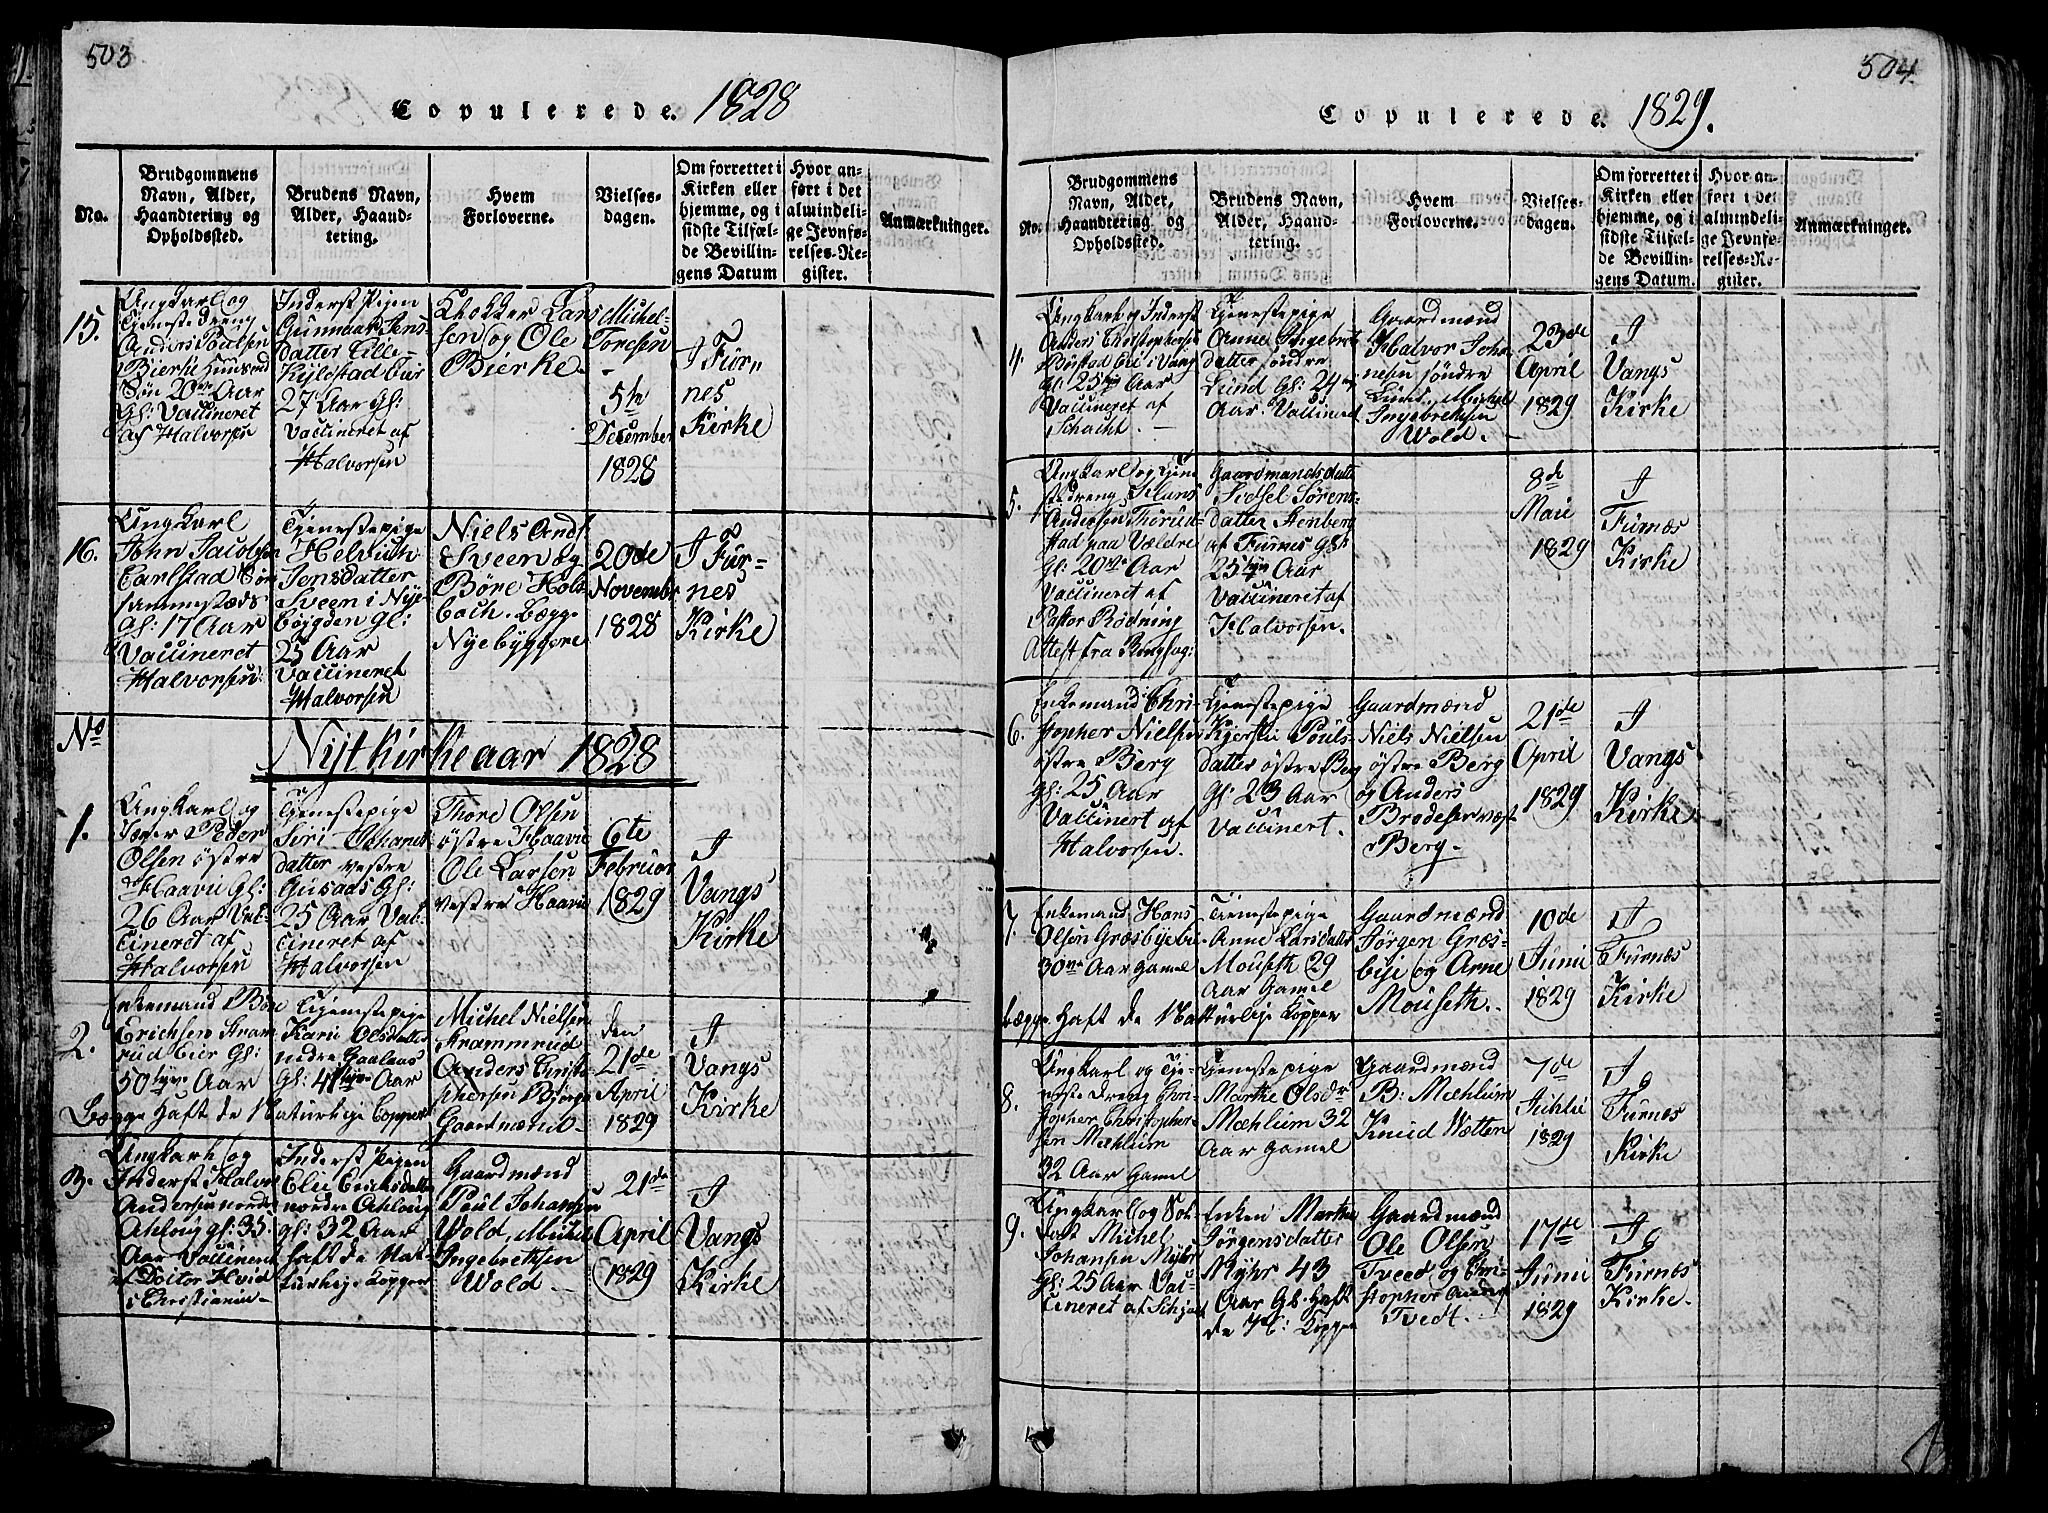 503
Copulerede. 1828
No.
Brudgommens
Navn, Alder,
Haandtering og
Opholdssted.
Brudens Navn,
Alder, Haand-
tering.
Hvem
Forloverne.
Vielses-
dagen.
Om forrettet i
Kirken eller
hjemme, og i
sidste Tilfæl-
de Bevillin-
gens Datum
Hvor an-
ført i det
almindeli-
ge Jevnfø-
relses-Re-
gister.
Anmærkninger.
15.
Ungkarl og
Tjenestedreng
Anders Poulsen
Bierke Huusmd
Søn 20 Aar
Gl: Vaccineret
af Halvorsen
Inderst Pigen
Gunnar Jens-
datter Lille
Kylstad Eier
27 Aar gl:
Vaccineret af
Halvorsen
Klokker Lars
sen og Ole
Bierke
Michel-
Toresen
5te
December
1828
I Fur-
nes
Kirke
16.
Ungkarl
John Jacobsen
Carlstad Søn
sammestæds
gl: 17 Aar
Vaccineret
Halvorsen
Tjenestepige
Helvich
Jensdatter
Sveen i Nye
bøygden gl:
25 Aar
Vaccineret
Halvorsen
Niels And:
Sveen og
Børe Hols
bach. Bægge
Nyebyggere
20de
Novembr
1828
I Fur-
nes
Kirke
No
Nyt Kirkeaar 1828
1.
Ungkarl og
Peder
Olsen østre
Haavie Gl:
26 Aar Vac-
cineret af
Halvorsen
Tjenestepige
Siri Johanis
datter vestre
Gusaas Gl:
25 Aar Vac-
cineret af
Halvorsen
Thore Olsen
østre Haavie
Ole Larsen
vestre Haavie
6te
Februar
1829
I
Vangs
Kirke
2.
Enkemand Børe
Erichsen Stram
rud Eier Gl:
50 tyve Aar
Tjenestepige
Kari Olsdatter
nedre Gaalaas
Gl: 41 Aar
Bægge Haft de Naturlige Copper
Michel Nielsen
Strammrud
Anders Christo
phersen Bjørge
Gaardmænd
den
21de
April
1829
I
Vangs
Kirke
3.
Ungkarl og
Inderst Halvor
Andersen nordre
Ahlong gl: 35
Aar Vaccineret
af Doctor Hvid
i Christiania
Inderst Pigen
Elie Erichsdatter
nordre Ahlong
gl: 32 Aar
haft de Nat-
turlige Kopper
Gaardmænd
Poul Johansen
Wold, Michel
Ingebretsen
Wold
21de
April
1829
I
Vangs
Kirke
504.
Copulerede. 1829.
No.
Brudgommens
Navn, Alder,
Haandtering og
Opholdssted.
Brudens Navn,
Alder, Haand-
tering.
Hvem
Forloverne.
Vielses-
dagen.
Om forrettet i
Kirken eller
hjemme, og i
sidste Tilfæl-
de Bevillin-
gens Datum.
Hvor an-
ført i det
almindeli-
ge Jevnfø-
relses-Re-
gister.
Anmærkninger.
4.
Ungkarl og Inderst
Anders Christophersen
Bustad Eie i Vang
Gl: 25 Aar
Vaccineret af
Schacht.
Tjenestepige
Anne Ingebrets
datter søndre
Lund Gl: 24
Aar. Vaccineret
Gaardmænd
Halvor John
nesen søndre
Lund, Michel
Ingebretsen
Wold.
23de
April
1829
I
Vangs
Kirke
5.
Ungkarl og Tjene
stedreng Hans
Andersen Thorud-
stad paa Vældre
Gl: 20 Aar
Vaccineret af
Pastor Rødning
Attest fra Ringsag:
Gaardmandsdatter
Sidsel Sørens-
datter Stenberg
af Furnes Gl:
25 tyve Aar
Vaccineret af
Halvorsen.
8de
Maii
1829
I
Furnæs
Kirke
6.
Enkemand Chri-
stopher Nielsen
østre Berg
Gl: 25 Aar
Vaccinert af
Halvorsen.
Tjenestepige
Kjersti Pouls-
datter østre Berg
Gl: 23 Aar
Vaccinert.
Gaardmænd
Niels Nielsen
østre Berg
og Anders
Brodesen vest
Berg.
21de
April
1829
I
Vangs
Kirke
7.
Enkemand Hans
Olsen Græsbye Eie
30 Aar Gamel
Tjenestepige
Anne Larsdatter
Mouseth 29
Aar Gamel
Bægge Haft de Natturlige Kopper
Gaardmænd
Jørgen Græs-
bye og Arne
Mouseth.
10de
Junii
1829
I
Furnæs
Kirke
8.
Ungkarl og Tje-
neste dreng Chri-
stopher Christopher-
sen Mæhlum
32 Aar Gamel
Tjenestepige
Marthe Olsdr
Mæhlum 32
Aar Gamel
Gaardmænd
B: Mæhlum
Knud Wætten
7de
Juhlii
1829
I
Furnæs
Kirke
9.
Ungkarl og Sol-
dat Michel
Johansen Myhr
Gl: 25 Aar Vac-
cineret af
Enken Marthe
Jørgensdatter
Myhr 43
Aar Gl. Haft
de N: Kopper
Gaardmænd
Ole Olsen
Tveed og Chri-
stopher
Tvedt.
17de
Junii
1829
I
Furnæs
Kirke.